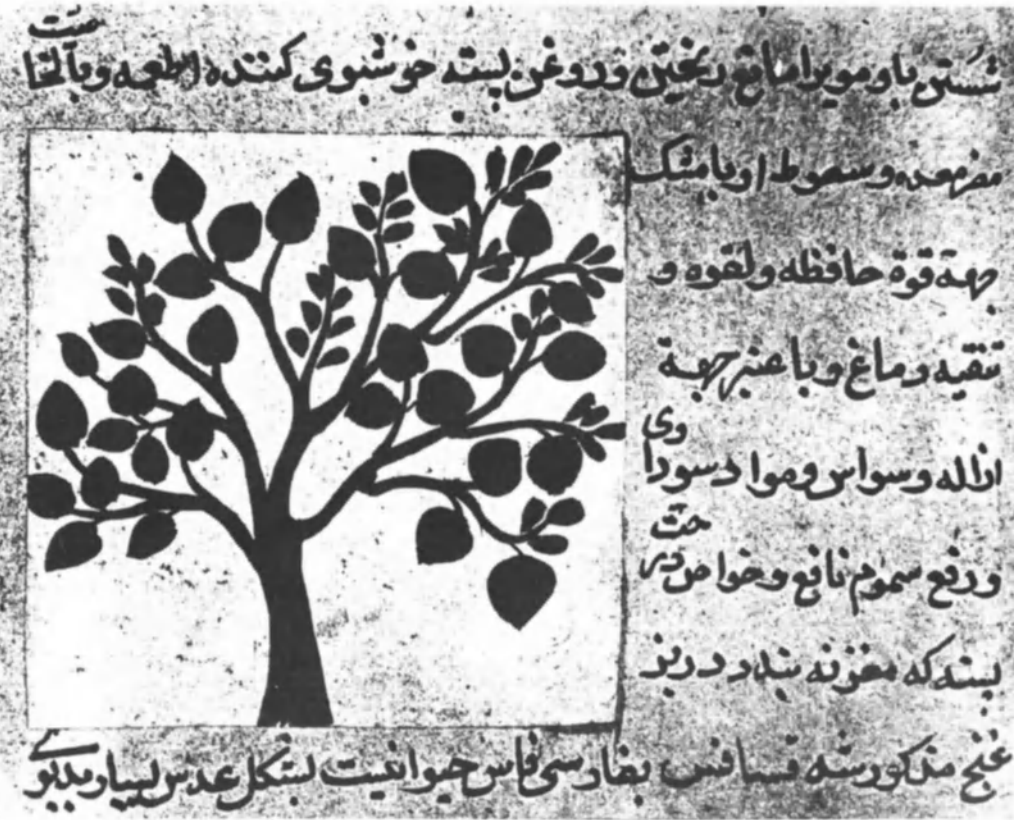 شستن با و مویرا مانع ریختن و روغن پسته خوشبوی کننده اطعمه و بالخاصیت
معده و سعوط او با مشک
جهة قوة حافظه و لقوه و
تنقیه دماغ و با عنبر جهة
ازاله وسواس و مواد سوداوی
و رفع سموم نافع و خواص درخت
پسته که مغز نه بندد در بز
غنج مذکور شد فسافس بفارسی فاس حیوانیست بشکل عدس بسیار بدبوی